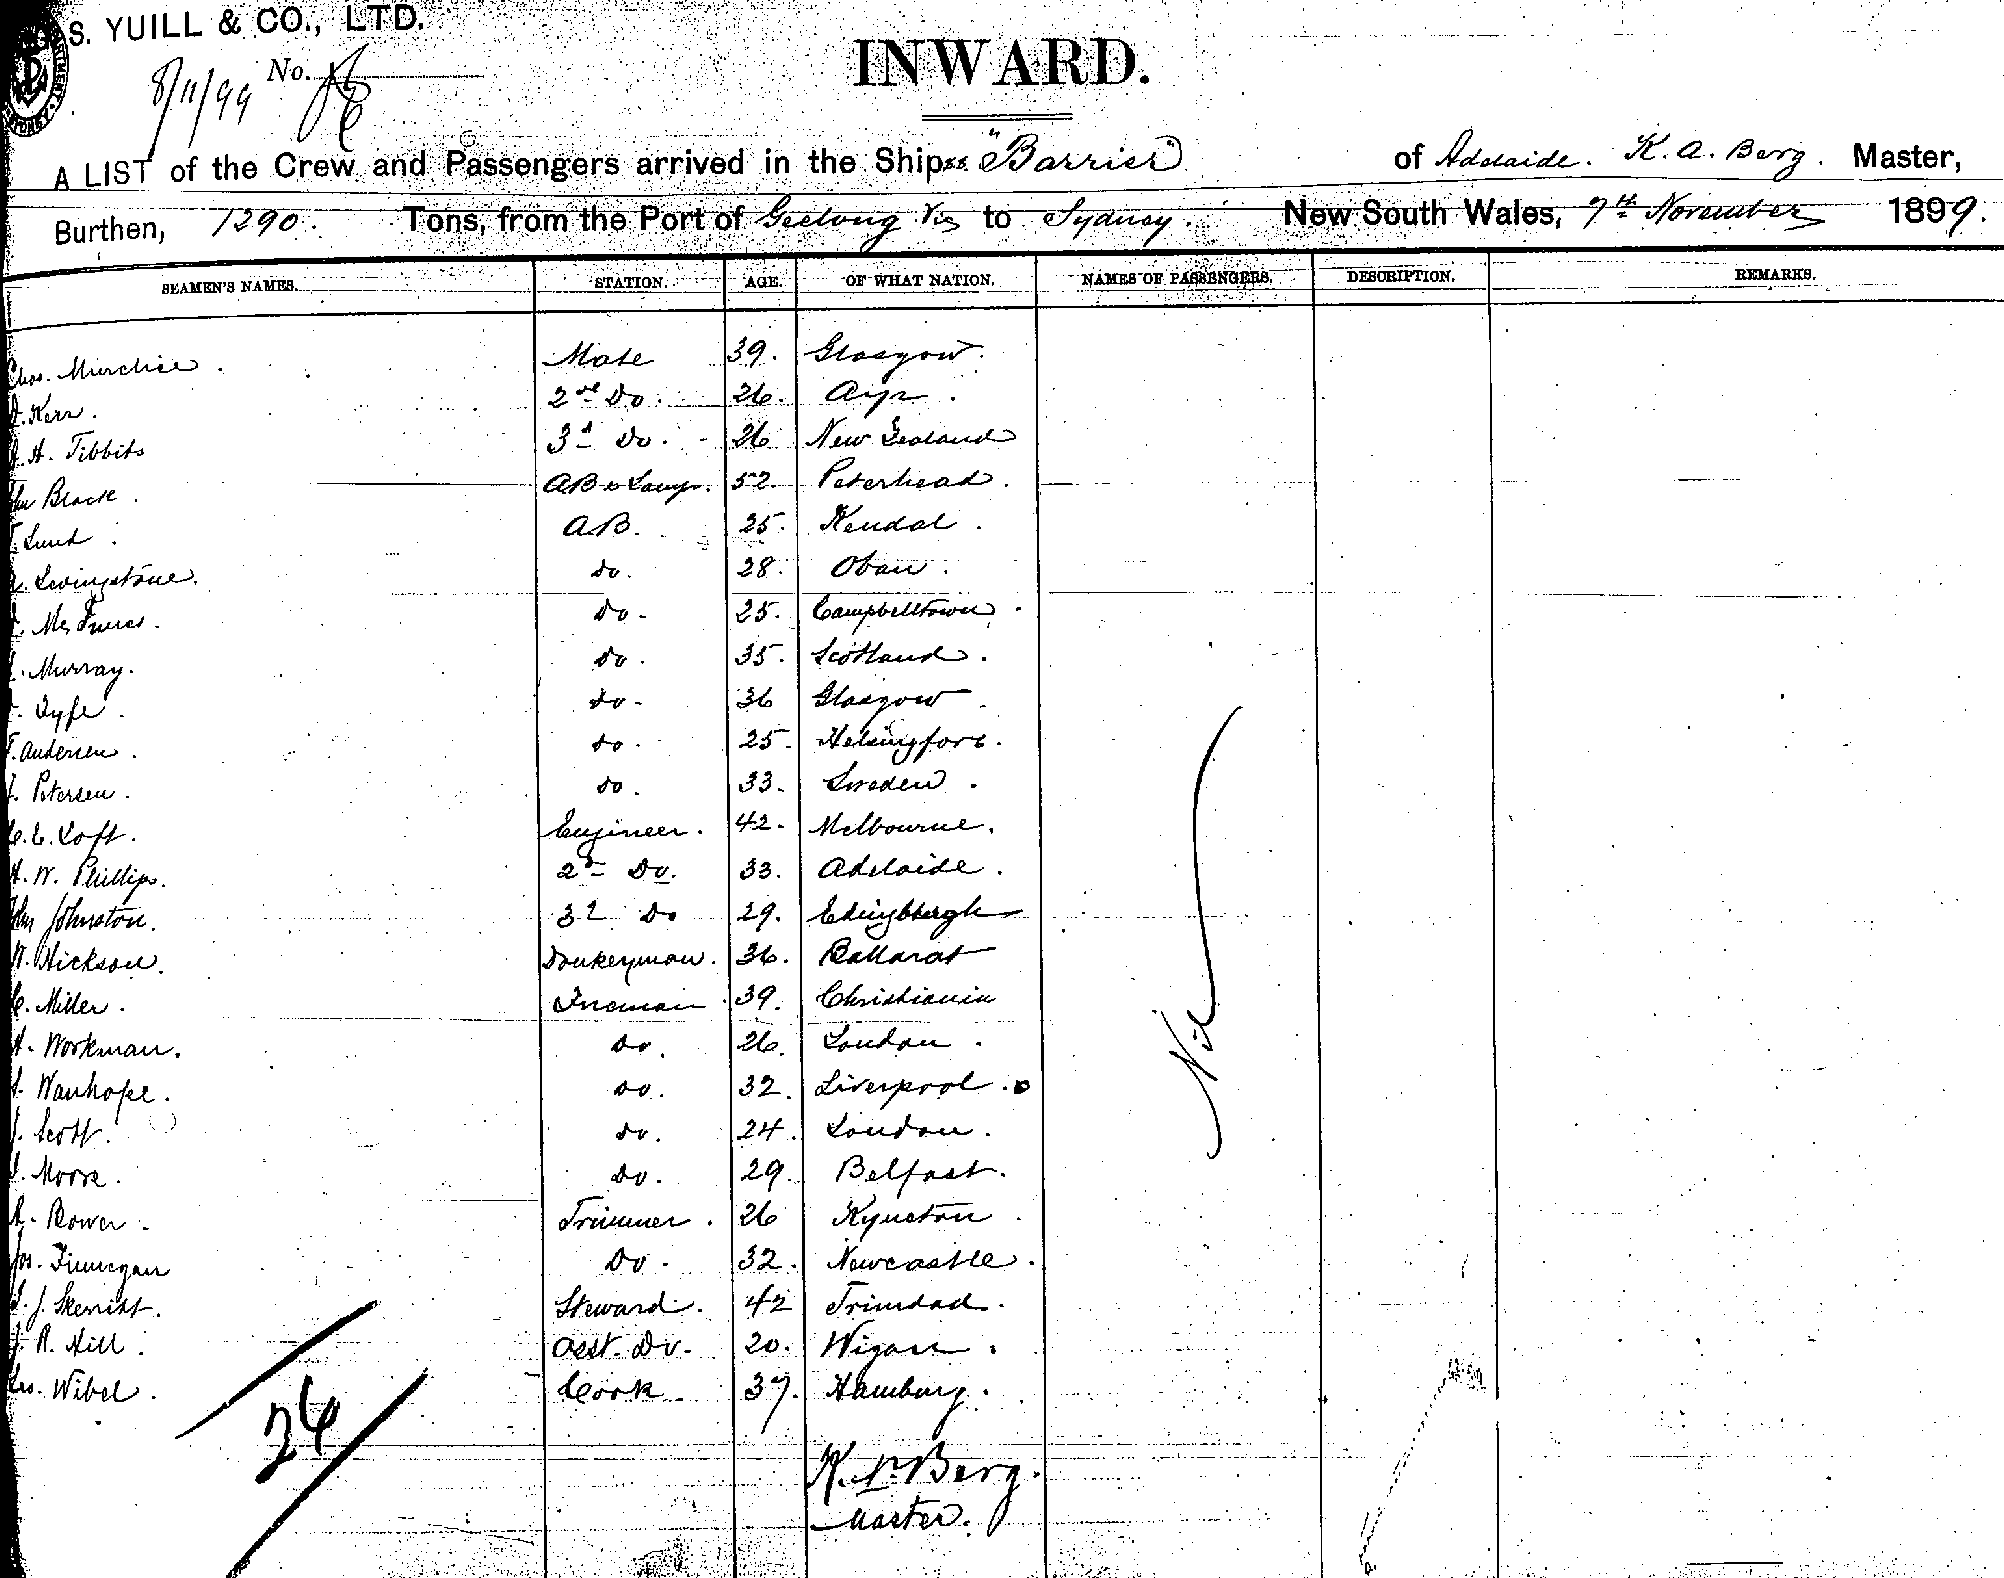 S. YUILL & CO., LTD.
8/11/99 No.
INWARD.
A LIST of the Crew and Passengers arrived in the Ship "Barrier" of Adelaide. K. A. Berg. Master,
Burthen, 1290. Tons, from the Port of Geelong Vic to Sydney. New South Wales, 7th November 1899.
SEAMEN'S NAMES. STATION. AGE. OF WHAT NATION. NAMES OF PASSENGERS. DESCRIPTION. REMARKS.
Chas. Murchie. Mate 39. Glasgow.
Kerr. 2nd Do. 26. Ayr.
H. Tibbits 3d Do. 26 New Zealand
Black. AB & Lamps. 52. Peterhead.
Lund. AB. 25. Kendal.
Livingstone. do. 28. Oban.
McInnes. Do. 25. Campbelltown.
Murray. do. 35. Scotland.
Fyfe. do. 36 Glasgow.
Andersen. do. 25. Helsingfors.
Petersen. do. 33. Sweden.
C. C. Loft. Engineer. 42. Melbourne.
H. W. Phillips. 2nd Do. 33. Adelaide.
Jno Johnston. 3d Do 29. Edingburgh
W. Hickson. Donkeyman. 36. Ballarat
C. Miller. Fireman. 39. Christiania
A. Workman. do. 26. London.
Wauhope. do. 32. Liverpool.
J. Scott. do. 24. London.
Moore. Do. 29. Belfast.
A. Bower. Trimmer. 26 Kyneton.
Jos. Finnegan Do. 32. Newcastle.
J. Skerritt. Steward. 42 Trinidad.
J. R. Hill. Asst. Do. 20. Wigan.
Wibel. Cook. 37. Hamburg.
Nil
26
K. A. Berg.
Master.